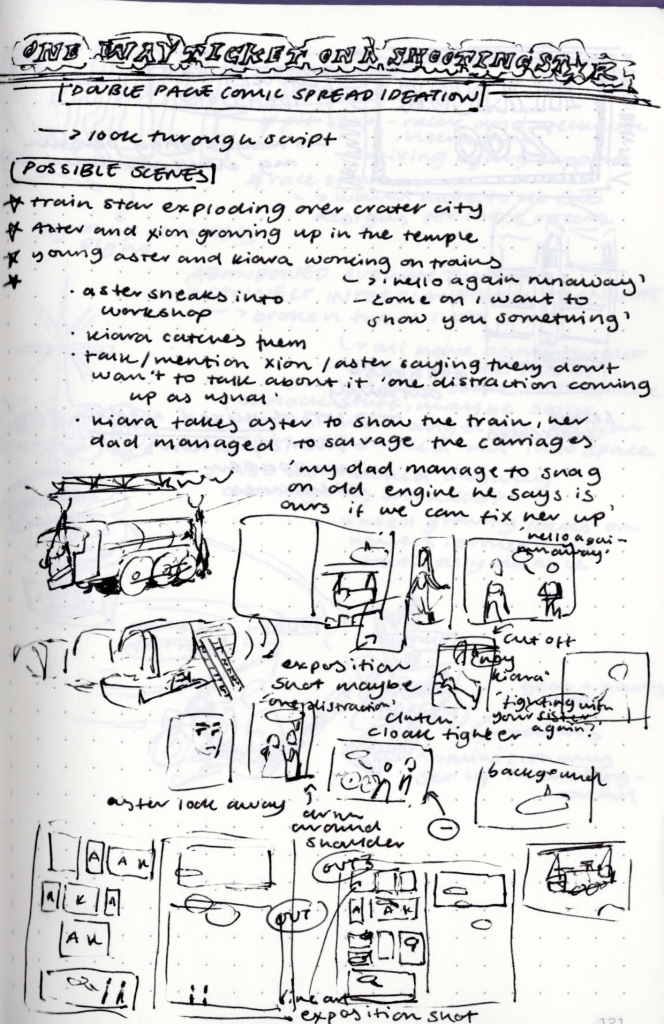 ONE WAY TICKET ON A SHOOTING STAR
DOUBLE PAGE COMIC SPREAD IDEATION
-> look through script
POSSIBLE SCENES
train star exploding over crater city
Aster and xion growing up in the temple
young aster and kiara working on trains
> 'hello again runaway'
- come on i want to
show you something'
· aster sneaks into
workshop
· kiara catches them
· talk/mention xion/aster saying they don't
want to talk about it 'one distraction coming
up as usual.'
· kiara takes aster to show the train, her
dad managed to salvage the carriages
'my dad manage to snag
an old engine he says is
ours if we can fix her up'
'hello again
runaway'
cut off
kiara'
'fighting with
your sister
again?
exposition
shot maybe
'one distraction'
clutch
cloak tighter
background
aster look away
arm
around
shoulder
A
A K
A
K
A
A K
OUT
A
A K
a
a
line art
exposition shot
121